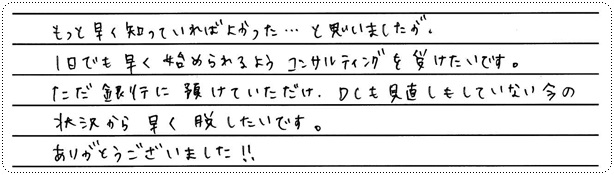 もっと早く知っていればよかった…と思いましたが、
1日でも早く始められるようコンサルティングを受けたいです。
ただ銀行に預けていただけ、DCも見直しもしていない今の
状況から早く脱したいです。
ありがとうございました!!